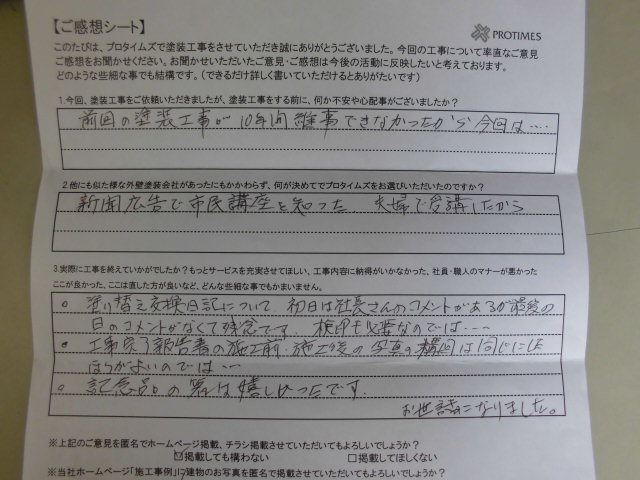 【ご感想シート】
PROTIMES
このたびは、プロタイムズで塗装工事をさせていただき誠にありがとうございました。今回の工事について率直なご意見
ご感想をお聞かせください。お聞かせいただいたご意見・ご感想は今後の活動に反映したいと考えております。
どのような些細な事でも結構です。(できるだけ詳しく書いていただけるとありがたいです)
1.今回、塗装工事をご依頼いただきましたが、塗装工事をする前に、何か不安や心配事がございましたか?
前回の塗装工事が10年間維事できなかったから今回は‥‥
2.他にも似た様な外壁塗装会社があったにもかかわらず、何が決めてでプロタイムズをお選びいただいたのですか?
新聞広告で市民講座を知った 夫婦で受講したから
3.実際に工事を終えていかがでしたか?もっとサービスを充実させてほしい、工事内容に納得がいかなかった、社員・職人のマナーが悪かった
ここが良かった、ここは直した方が良いなど、どんな些細な事でもかまいません。
○ 塗り替え交換日記について 初日は社長さんのコメントがあるが最後の
日のコメントがなくて残念です。検印も必要なのでは‥‥
○ 工事完了報告書の施工前、施工後の写真の構図は同じにした
ほうがよいのでは‥
○ 記念品の
は嬉しかったです
お世話になりました。
※上記のご意見を匿名でホームページ掲載、チラシ掲載させていただいてもよろしいでしょうか?
☑掲載しても構わない □掲載してほしくない
※当社ホームページ「施工事例」に建物のお写真を匿名で掲載させていただいてもよろしいでしょうか?